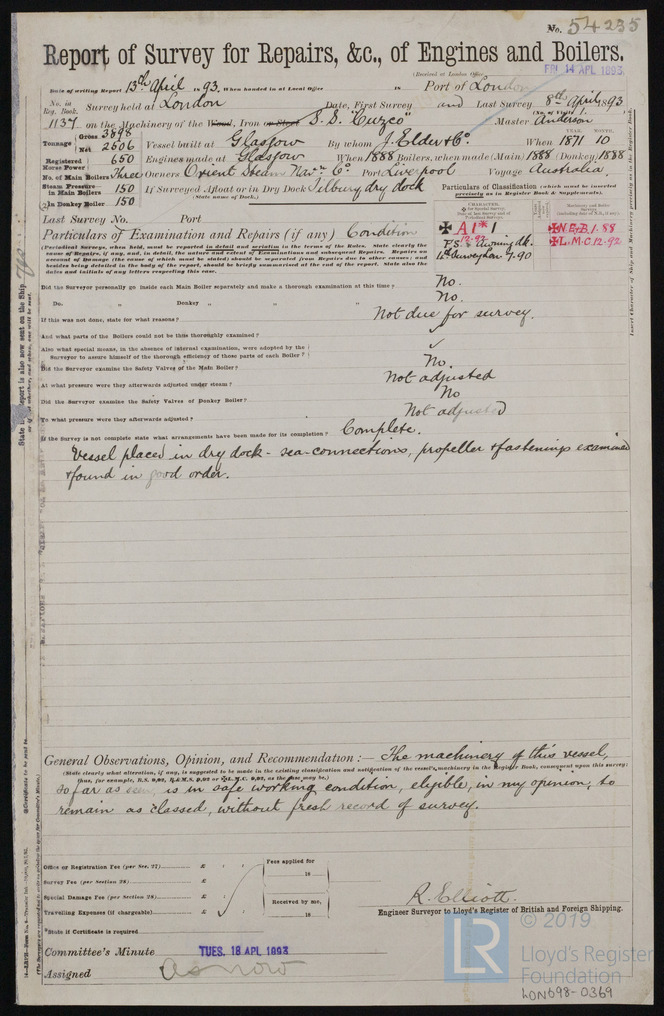 No. 54235
Report of Survey for Repairs, &c., of Engines and Boilers.
(Received at London Office FRI. 14 APL 1893)
Date of writing Report 13th April 1893. When handed in at Local Office 18 Port of London
No. in Reg. Book. Survey held at London Date, First Survey and Last Survey 8th April 1893
(No. of Visits 1.)
1137 on the Machinery of the Wood, Iron or Steel S.S. "Cuzco" Master Anderson
Tonnage Gross 3898 Net 2506 Vessel built at Glasgow By whom J. Elder & Co. When YEAR. 1871 MONTH. 10
Registered Horse Power 650 Engines made at Glasgow When 1888 Boilers, when made (Main) 1888 (Donkey) 1888
No. of Main Boilers Three Owners Orient Steam Navn. Co. Port Liverpool Voyage Australia.
Steam Pressure in Main Boilers 150 If Surveyed Afloat or in Dry Dock Tilbury dry dock
(State name of Dock.)
In Donkey Boiler 150
Particulars of Classification (which must be inserted precisely as in Register Book & Supplements).
Last Survey No. Port
✠ A1* 1 12.92 ✠N.E.&B. 1.88
✠L.M.C. 12.92
Particulars of Examination and Repairs (if any) Condition
(Periodical Surveys, when held, must be reported in detail and seriatim in the terms of the Rules. State clearly the
name of Repairs, if any, and, in detail, the nature and extent of Examinations and subsequent Repairs. Repairs on
account of Damage (the cause of which must be stated) should be separated from Repairs due to other causes; and
besides being detailed in the body of the report, should be briefly summarised at the end of the report. State also the
dates and initials of any letters respecting this case.
Did the Surveyor personally go inside each Main Boiler separately and make a thorough examination at this time? No.
Do. " Donkey " " " No.
If this was not done, state for what reasons? Not due for survey.
And what parts of the Boilers could not be thus thoroughly examined? ✓
Also what special means, in the absence of internal examination, were adopted by the
Surveyor to assure himself of the thorough efficiency of those parts of each Boiler? ✓
Did the Surveyor examine the Safety Valves of the Main Boiler? No.
At what pressure were they afterwards adjusted under steam? Not adjusted
Did the Surveyor examine the Safety Valves of Donkey Boiler? No
To what pressure were they afterwards adjusted? Not adjusted
If the Survey is not complete state what arrangements have been made for its completion? Complete.
Vessel placed in dry dock - sea-connections, propeller & fastenings examined
& found in good order.
General Observations, Opinion, and Recommendation :— The machinery of this vessel,
(State clearly what alteration, if any, is suggested to be made in the existing classification and notification of the vessel's machinery in the Register Book, consequent upon this survey;
so far as seen, is in safe working condition, eligible, in my opinion, to
remain as classed, without fresh record of survey.
Office or Registration Fee (per Sec. 27) £
Survey Fee (per Section 28) £
Special Damage Fee (per Section 28) £
Travelling Expenses (if chargeable) £
Fees applied for
18
Received by me,
18
R. Elliott.
Engineer Surveyor to Lloyd's Register of British and Foreign Shipping.
*State if Certificate is required
Committee's Minute TUES. 18 APL 1893
Assigned As now
© 2019
LR
Lloyd's Register
Foundation
LON698-0369